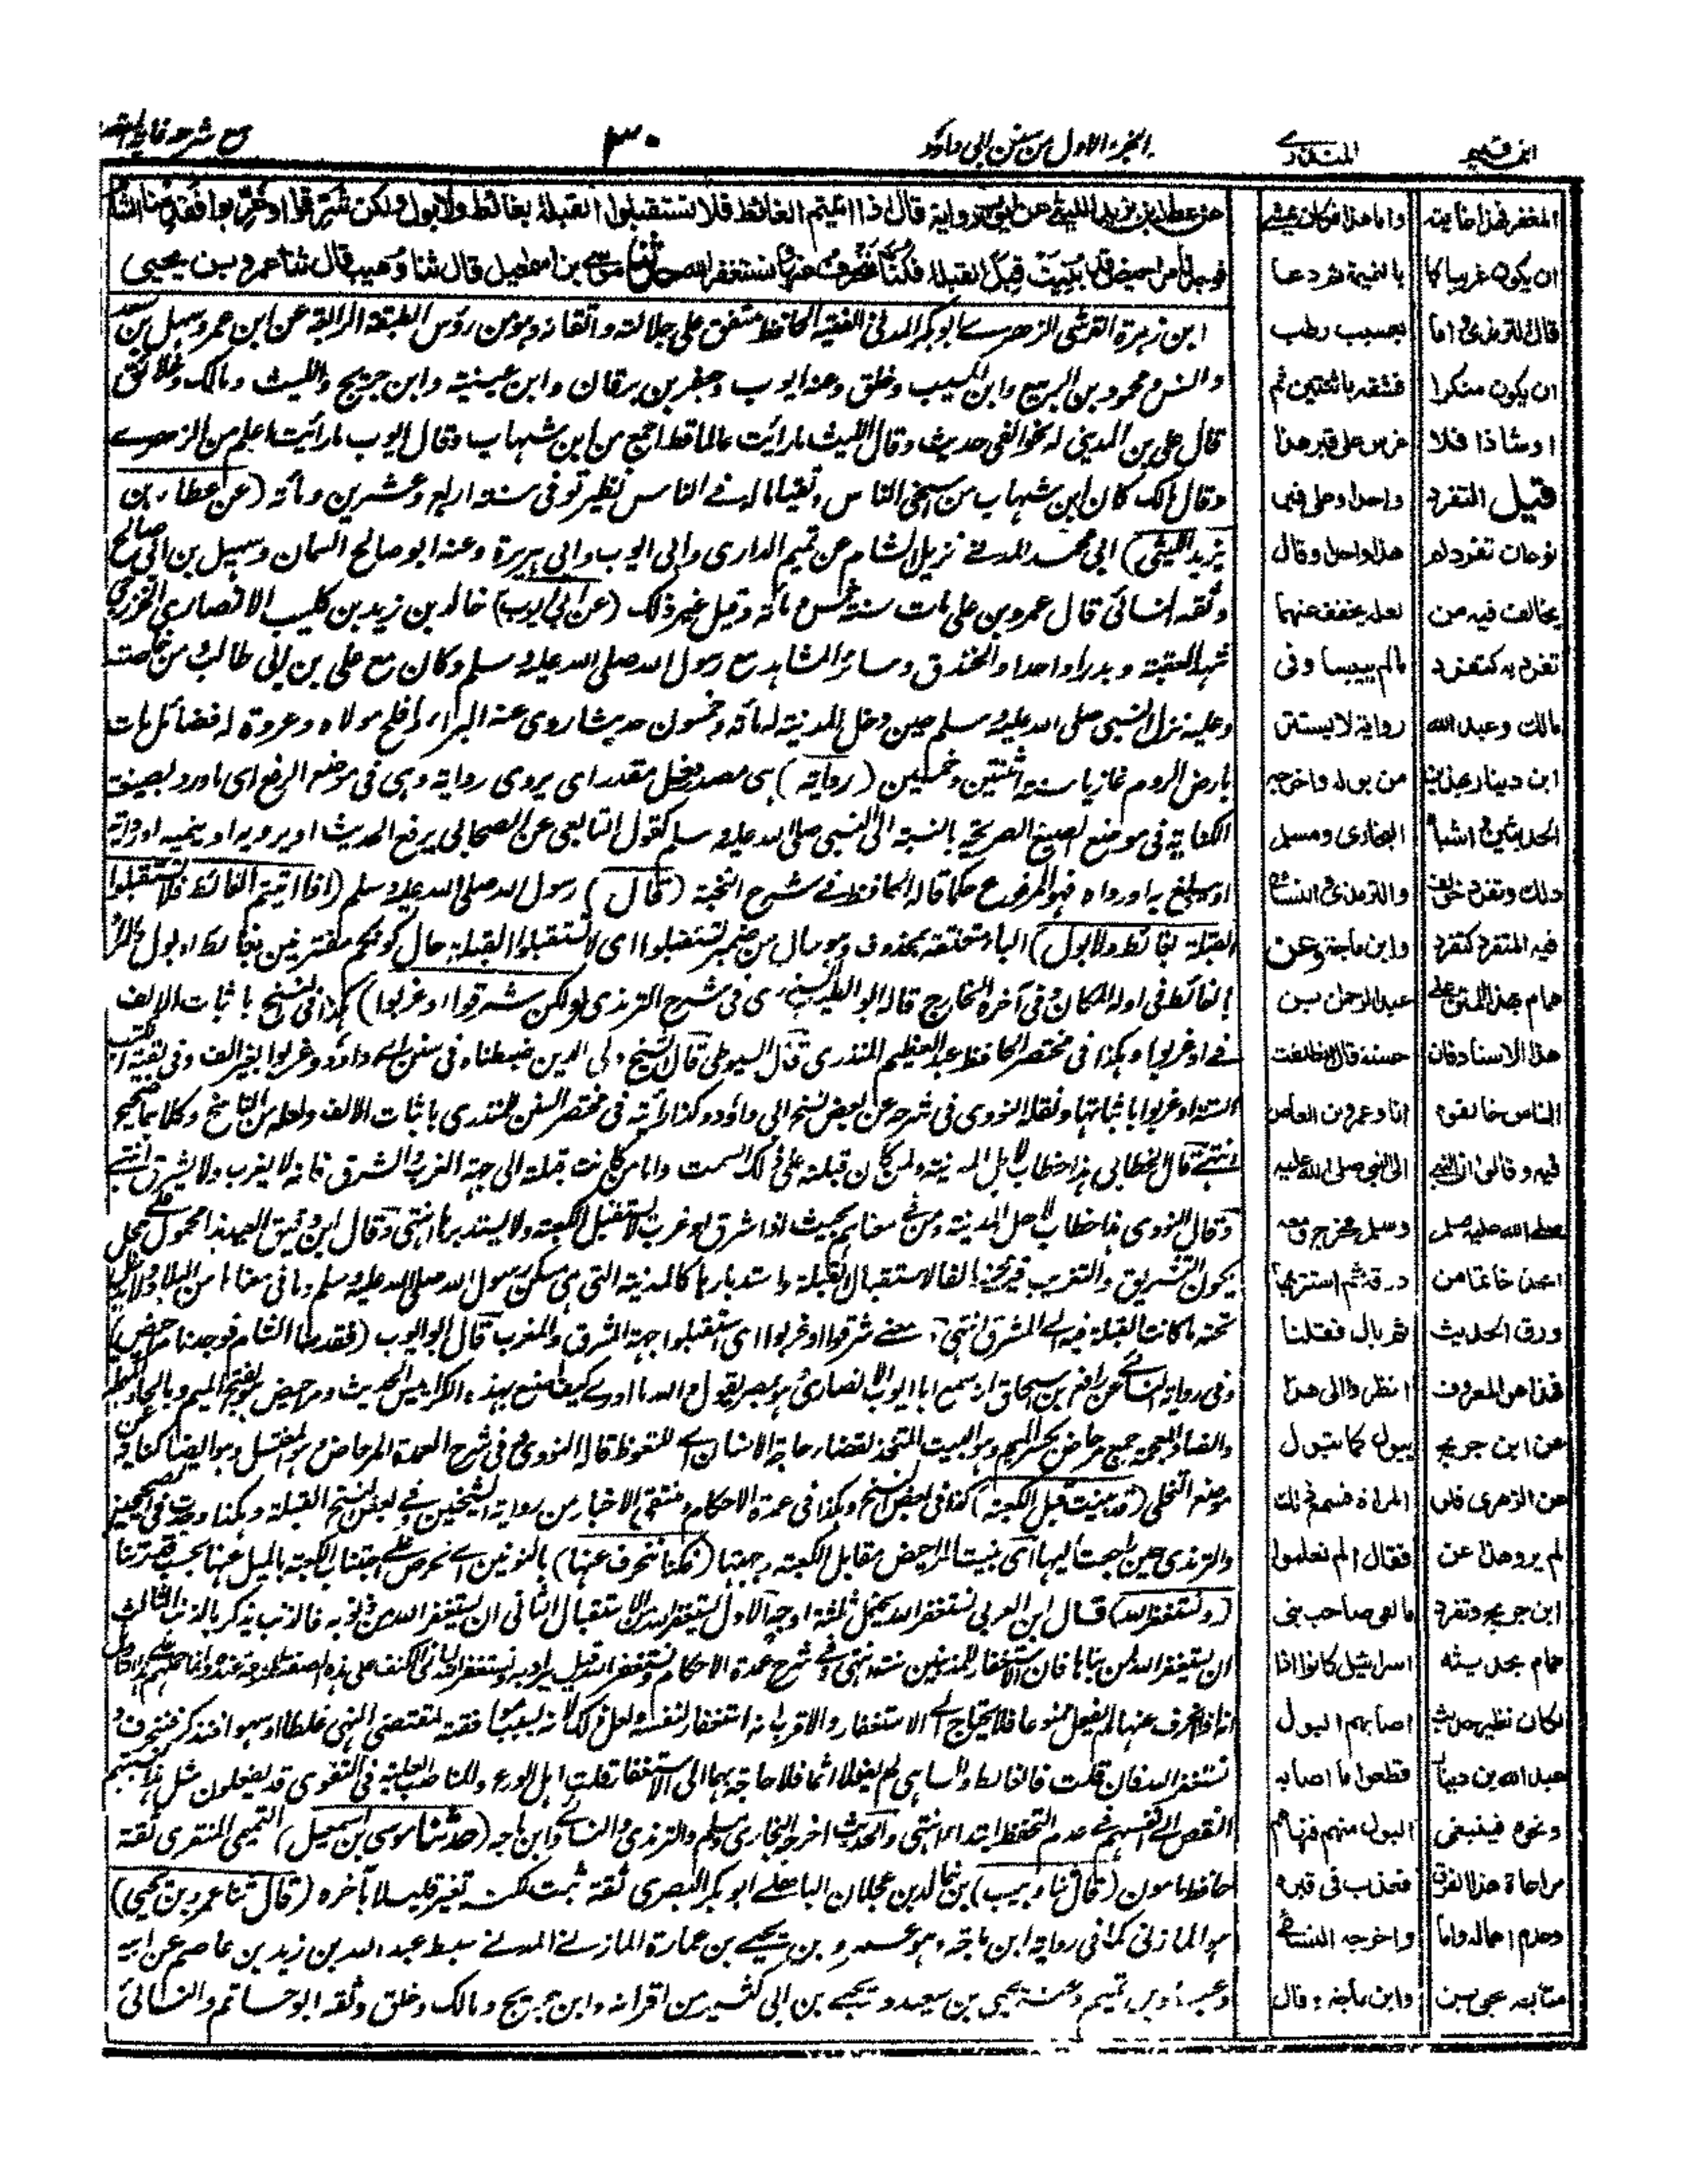 ابن قيم
المنذري
الجزء الاول من سنن ابى داود
٣٠
مع شرحه غاية المقصود
عن عطاء بن يزيد الليثي عن ابى ايوب رواية قال اذا اتيتم الغائط فلا تستقبلوا القبلة بغائط ولا بول ولكن شرقوا او غربوا فقدمنا الشام
فوجدنا مراحيض قد بنيت قبل القبلة فكنا ننحرف عنها ونستغفر الله حدثنا موسى بن اسمعيل قال ثنا وهيب قال ثنا عمرو بن يحيى
ابن زهرة القرشى الزهري ابو بكر المدنى الفقيه الحافظ متفق على جلالته واتقانه وهو من رؤس الطبقة الرابعة عن ابن عمر وسهل بن سعد
وانس ومحمود بن الربيع وابن المسيب وخلق وعنه ايوب وجعفر بن برقان وابن عيينة وابن جريج والليث ومالك وخلائق
قال على بن المدينى له نحو الفى حديث وقال الليث ما رأيت عالما قط اجمع من ابن شهاب وقال ايوب ما رأيت اعلم من الزهري
وقال مالك كان ابن شهاب من اسخى الناس وتقيا ماله في الناس نظير توفى سنة اربع وعشرين ومأته (عن عطاء بن
يزيد الليثى) ابى محمد المدنى نزيل الشام عن تميم الدارى وابى ايوب وابى هريرة وعنه ابو صالح السمان وسهيل بن ابى صالح
وثقه النسائى قال عمرو بن على مات سنة خمس ومائة وقيل غير ذلك (عن ابى ايوب) خالد بن زيد بن كليب الانصارى الخزرجى
شهد العقبة وبدرا واحدا والخندق وسائر المشاهد مع رسول الله صلى الله عليه وسلم وكان مع على بن ابى طالب ومن خاصته
وعليه نزل النبى صلى الله عليه وسلم حين دخل المدينة له مأته وخمسون حديثا روى عنه البراء وافلح مولاه وعروة له فضائل مات
بارض الروم غازيا سنة اثنتين وخمسين (رواية) هى مصدر لفعل مقدر اى يروى رواية وهى فى موضع الرفع اى ما ورد بصيغة
الكناية فى موضع الصيغ الصريحة بالنسبة الى النبى صلى الله عليه وسلم كقول التابعى عن الصحابى يرفع الحديث او يرويه او ينميه او رواية
او يبلغ به او رواه فهو المرفوع حكما قاله الحافظ في شرح النخبة (قال) رسول الله صلى الله عليه وسلم (اذا اتيتم الغائط فلا تستقبلوا
القبلة بغائط ولا بول) الباء متعلقة بمحذوف وهو حال من ضمير تستقبلوا اى لا تستقبلوا القبلة حال كونكم مقترنين بغائط او بول والمراد
بالغائط فى اوله المكان وفى آخره الخارج قاله ابو الطيب السندى فى شرح الترمذى (ولكن شرقوا او غربوا) كذا فى النسخ باثبات الالف
في او غربوا وهكذا فى مختصر الحافظ عبد العظيم المنذرى قال السيوطى قال الشيخ ولى الدين ضبطناه فى سنن ابى داؤد وغربوا بغير الف وفى بقية الكتب
الستة او غربوا باثباتها ونقله النووى فى شرحه عن بعض نسخ ابى داؤد وكذا رأيته فى مختصر السنن للمنذرى باثبات الالف ولعله من الناسخ وكلاهما صحيح
انتهى قال الخطابى هذا خطاب لاهل المدينة ولمن كان قبلته على ذلك السمت واما من كانت قبلته الى جهة الغرب او الشرق فانه لا يغرب ولا يشرق انتهى
وقال النووى هذا خطاب لاهل المدينة ومن فى معناهم بحيث اذا شرق او غرب لا يستقبل الكعبة ولا يستدبرها انتهى وقال ابن دقيق العيد هذا محمول على محل
يكون التشريق والتغريب فيه مخالفا لاستقبال القبلة واستدبارها كالمدينة التى هى مسكن رسول الله صلى الله عليه وسلم وما فى معناها من البلاد ولا يدخل
تحته ما كانت القبلة فيه الى المشرق انتهى معنى شرقوا او غربوا اى استقبلوا جهة المشرق والمغرب قال ابو ايوب (فقدمنا الشام فوجدنا مراحيض)
وفى رواية النسائى عن رافع بن اسحاق انه سمع ابا ايوب الانصارى وهو بمصر يقول والله ما ادرى كيف اصنع بهذه الكرابيس الحديث ومراحيض بفتح الميم وبالحاء المهملة
والضاد المعجمة جمع مرحاض بكسر الميم وهو البيت المتخذ لقضاء حاجة الانسان اى للتغوط قاله النووى وفى شرح العمدة المرحاض هو المغتسل وهو ايضا كناية عن
موضع التخلى (قد بنيت قبل الكعبة) كذا فى بعض النسخ وهكذا فى عمدة الاحكام ومنتقى الاخبار من رواية الشيخين وفي بعض النسخ القبلة وهكذا وجدت فى الصحيحين
والترمذى حين راجعت اليها اى بنيت المراحيض مقابل الكعبة وجهتها (فكنا ننحرف عنها) بالنونين اى نحرص على اجتناب الكعبة بالميل عنها بحسب قدرتنا
(ونستغفر الله) قال ابن العربى نستغفر الله يحتمل ثلثة اوجه الاول يستغفر الله من الاستقبال الثانى ان يستغفر الله من ذنوبه فالذنب يذكر بالذنب الثالث
ان يستغفر الله لمن بناها فان الاستغفار للمذنبين سنة انتهى وفي شرح عمدة الاحكام ونستغفر الله قيل يراد به ونستغفر الله لبانى الكنف على هذه الصفة الممنوعة عنده وانما حملهم على هذا التاويل
انه اذا انحرف عنها لم يفعل ممنوعا فلا يحتاج الى الاستغفار والاقرب انه استغفار لنفسه ولعل ذلك لانه بسبب موافقته لمقتضى النهى غلطا او سهوا فتذكر فينحرف و
نستغفر الله فان قلت فالغالط والساهى لم يفعلا اثما فلا حاجة بهما الى الاستغفار قلت اهل الورع والمناصب العلية فى التقوى قد يفعلون مثل هذا بنسبتهم
النقص الى انفسهم في عدم التحفظ ابتداء انتهى والحديث اخرجه البخارى ومسلم والترمذى والنسائى وابن ماجه (حدثنا موسى بن اسمعيل) التميمى المنقرى ثقة
حافظ مامون (قال ثنا وهيب) بن خالد بن عجلان الباهلى ابو بكر البصرى ثقة ثبت لكنه تغير قليلا بآخره (قال ثنا عمرو بن يحيى)
هو المازنى كما فى رواية ابن ماجه وهو عمرو بن يحيى بن عمارة المازنى المدنى سبط عبد الله بن زيد بن عاصم عن ابيه
وعباد بن تميم وعنه يحيى بن سعيد ويحيى بن ابى كثير من اقرانه وابن جريج ومالك وخلق وثقه ابو حاتم والنسائى
واما هذا فكان يمشي
بالنميمة ثم دعا
بعسيب رطب
فشقه باثنتين ثم
غرس على هذا
واحدا وعلى
هذا واحدا وقال
لعله يخفف عنهما
ما لم ييبسا وفى
رواية لا يستتر
من بوله واخرجه
البخارى ومسلم
والترمذى والنسائى
وابن ماجة وعن
عبد الرحمن بن
حسنة قال انطلقت
انا وعمرو بن العاص
الى النبى صلى الله عليه
وسلم فخرج ومعه
درقة ثم استتر بها
ثم بال فقلنا
انظروا الى هذا
يبول كما تبول
المراة فسمع ذلك
فقال الم تعلموا
ما لقى صاحب بنى
اسرائيل كانوا اذا
اصابهم البول
قطعوا ما اصابه
البول منهم فنهاهم
فعذب فى قبره
واخرجه النسائى
وابن ماجة وقال
المغفر فهذا غايته
ان يكون غريبا كما
قال الترمذى اما
ان يكون منكرا
او شاذا فلا
قيل التفرد
نوعان تفرد لم
يخالف فيه من
تفرد به كتفرد
مالك وعبد الله
ابن دينار بهذين
الحديثين واشباه
ذلك وتفرد خولف
فيه المتفرد كتفرد
همام بهذا المتن على
هذا الاسناد فان
الناس خالفوه
فيه وقالوا ان النبى
صلى الله عليه وسلم
اتخذ خاتما من
ورق الحديث
فهذا هو المعروف
عن ابن جريج
عن الزهرى فلو
لم يرو هذا عن
ابن جريج وتفرد
همام بحديثه
لكان نظير حديث
عبد الله بن دينار
ونحوه فينبغى
مراعاة هذا الفرق
وعدم اهماله واما
متابعة يحيى بن